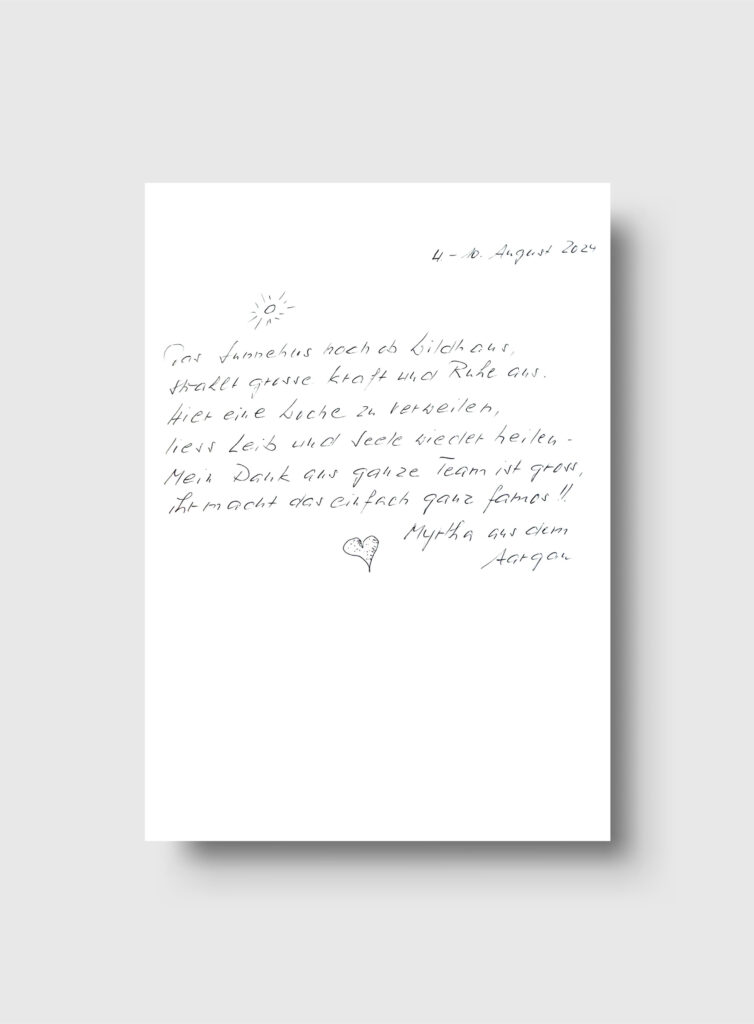 4 - 10. August 2024
Das Sunnehus hoch ob Wildhaus,
strahlt grosse Kraft und Ruhe aus.
Hier eine Woche zu verweilen,
liess Leib und Seele wieder heilen -
Mein Dank ans ganze Team ist gross,
ihr macht das einfach ganz famos!!
Myrtha aus dem
Aargau